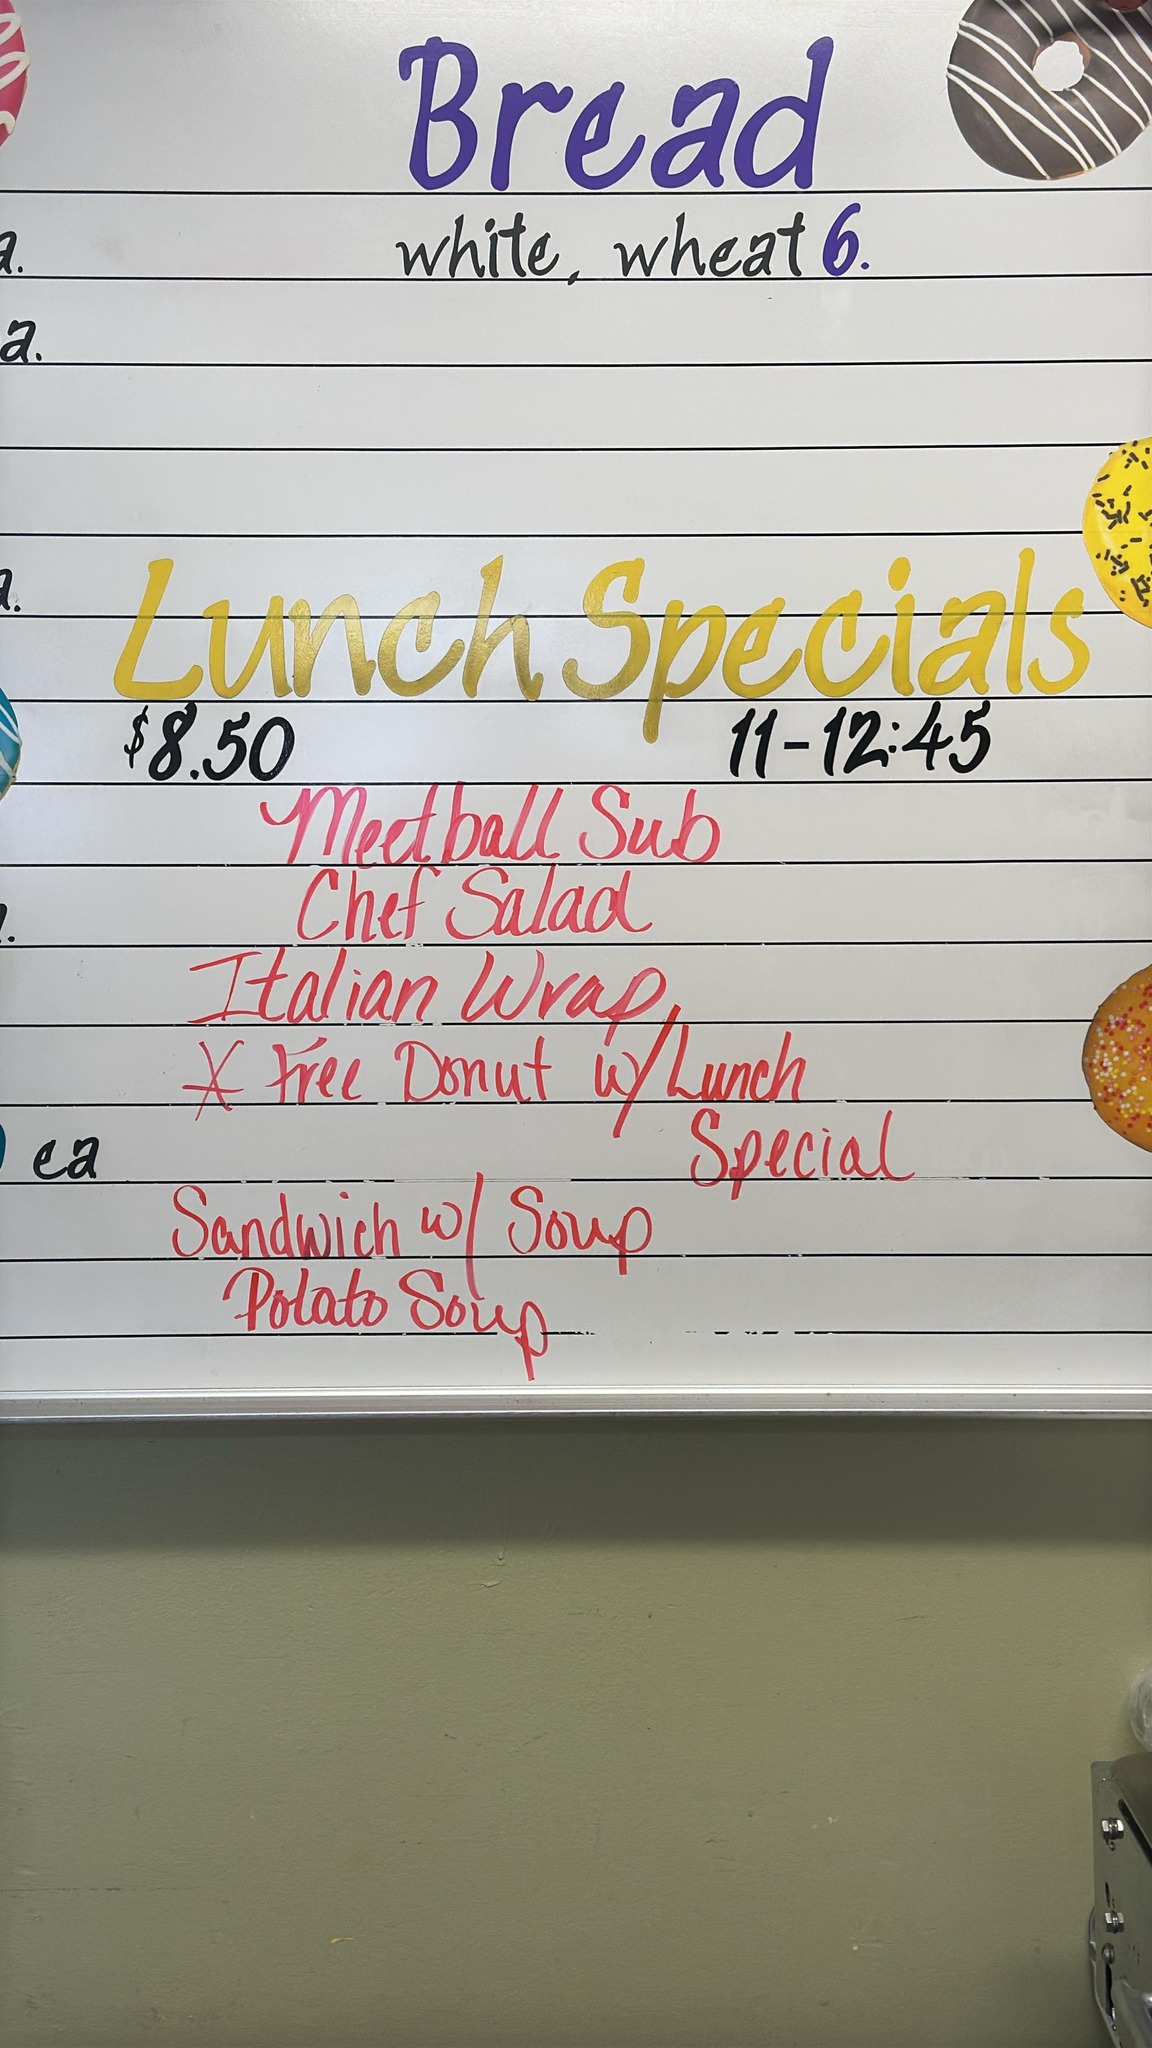 Bread
a.
white, wheat 6.
a.
a.
Lunch Specials
$8.50 11-12:45
Meetball Sub
Chef Salad
Italian Wrap
* Free Donut w/Lunch
Special
ea
Sandwich w/ Soup
Potato Soup